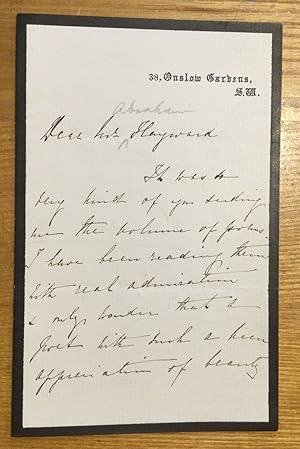 38, Onslow Gardens,
S.W.
Abraham
Dear Mr Hayward
It was
very kind of you sending
me the volume of poems.
I have been reading them
with real admiration
& only wonder that a
Poet with such a keen
appreciation of beauty